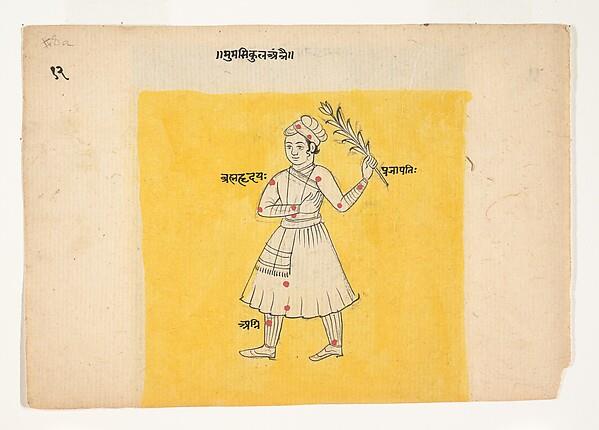 १२
॥मुमसिकुलअंनै॥
ब्रह्महृदयः
प्रजापतिः
अग्नि